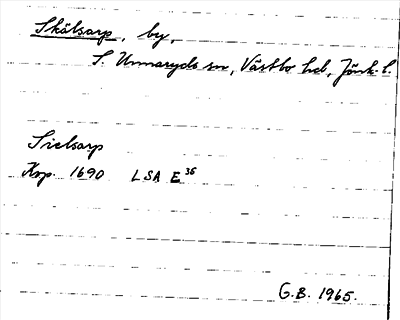 Skälsarp, by,
S. Unnaryds sn, Västbo hd, Jönk. l.
Sielsarp
Ksp. 1690 LSA E 36
G.B. 1965.